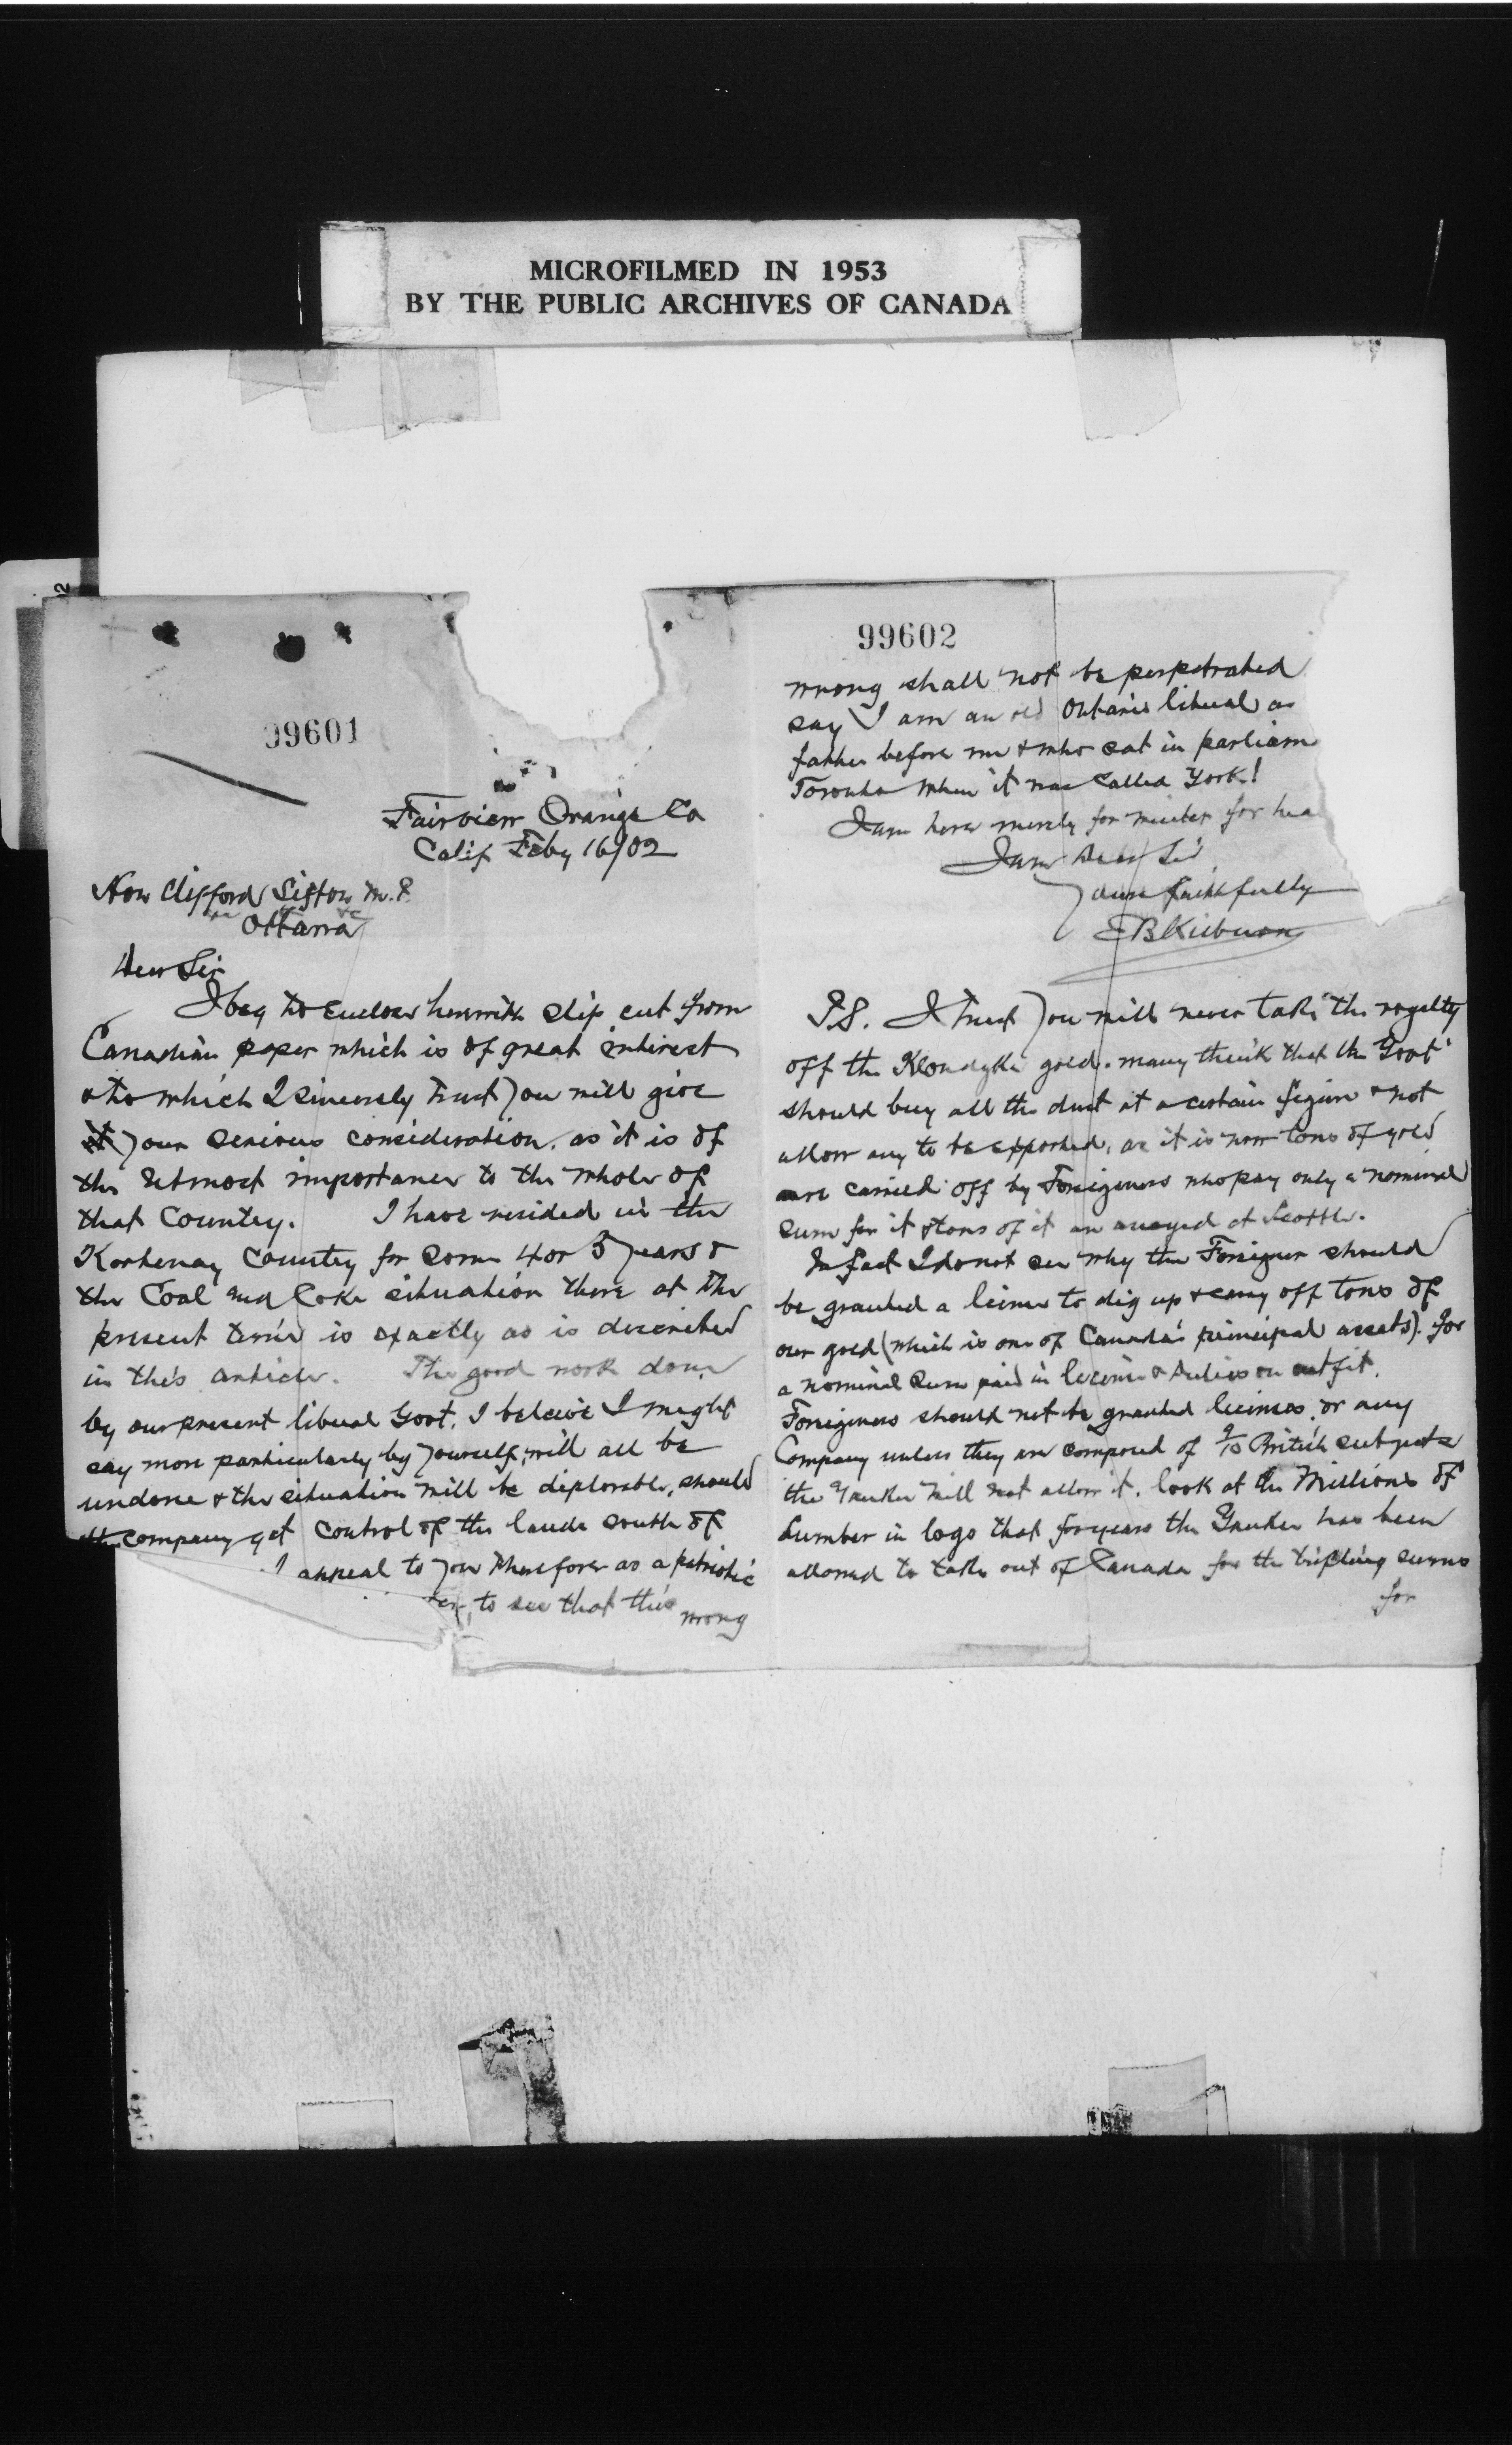 MICROFILMED IN 1953
BY THE PUBLIC ARCHIVES OF CANADA
99601
Fairview Orange Co
Calif Feby 16/02
Hon Clifford Sifton M.P.
Ottawa
Dear Sir
I beg to enclose herewith slip cut from
Canadian paper which is of great interest
& to which I sincerely trust you will give
it your serious consideration, as it is of
the utmost importance to the whole of
that Country. I have resided in the
Kootenay Country for some 4 or 5 years &
the Coal and Coke situation there at the
present time is exactly as is described
in this article. The good work done
by our present liberal Govt, I beleive I might
say more particularly by yourself, will all be
undone & the situation will be deplorable, should
the company get control of the lands south of
I appeal to you therefore as a patriotic
to see that this
wrong
99602
wrong shall not be perpetrated
say I am an old Ontario liberal as
father before me & who sat in parliam
Toronto when it was called York!
I am here merely for winter for hea
I am Dear Sir
Yours faithfully
EB Kilburn
P.S. I trust you will never take the royalty
off the Klondyke gold. many think that the Govt
should buy all the dust at a certain figure & not
allow any to be exported, as it is now tons of gold
are carried off by Foreigners who pay only a nominal
sum for it & tons of it are assayed at Seattle.
In fact I do not see why the Foreigner should
be granted a license to dig up & carry off tons of
our gold (which is one of Canada's principal assets). for
a nominal sum paid in license & duties on outfit.
Foreigners should not be granted licenses, or any
Company unless they are composed of 9/10 British subjects
the Yankee will not allow it. look at the Millions of
Lumber in logs that for years the Yankee has been
allowed to take out of Canada for the trifling sums
for